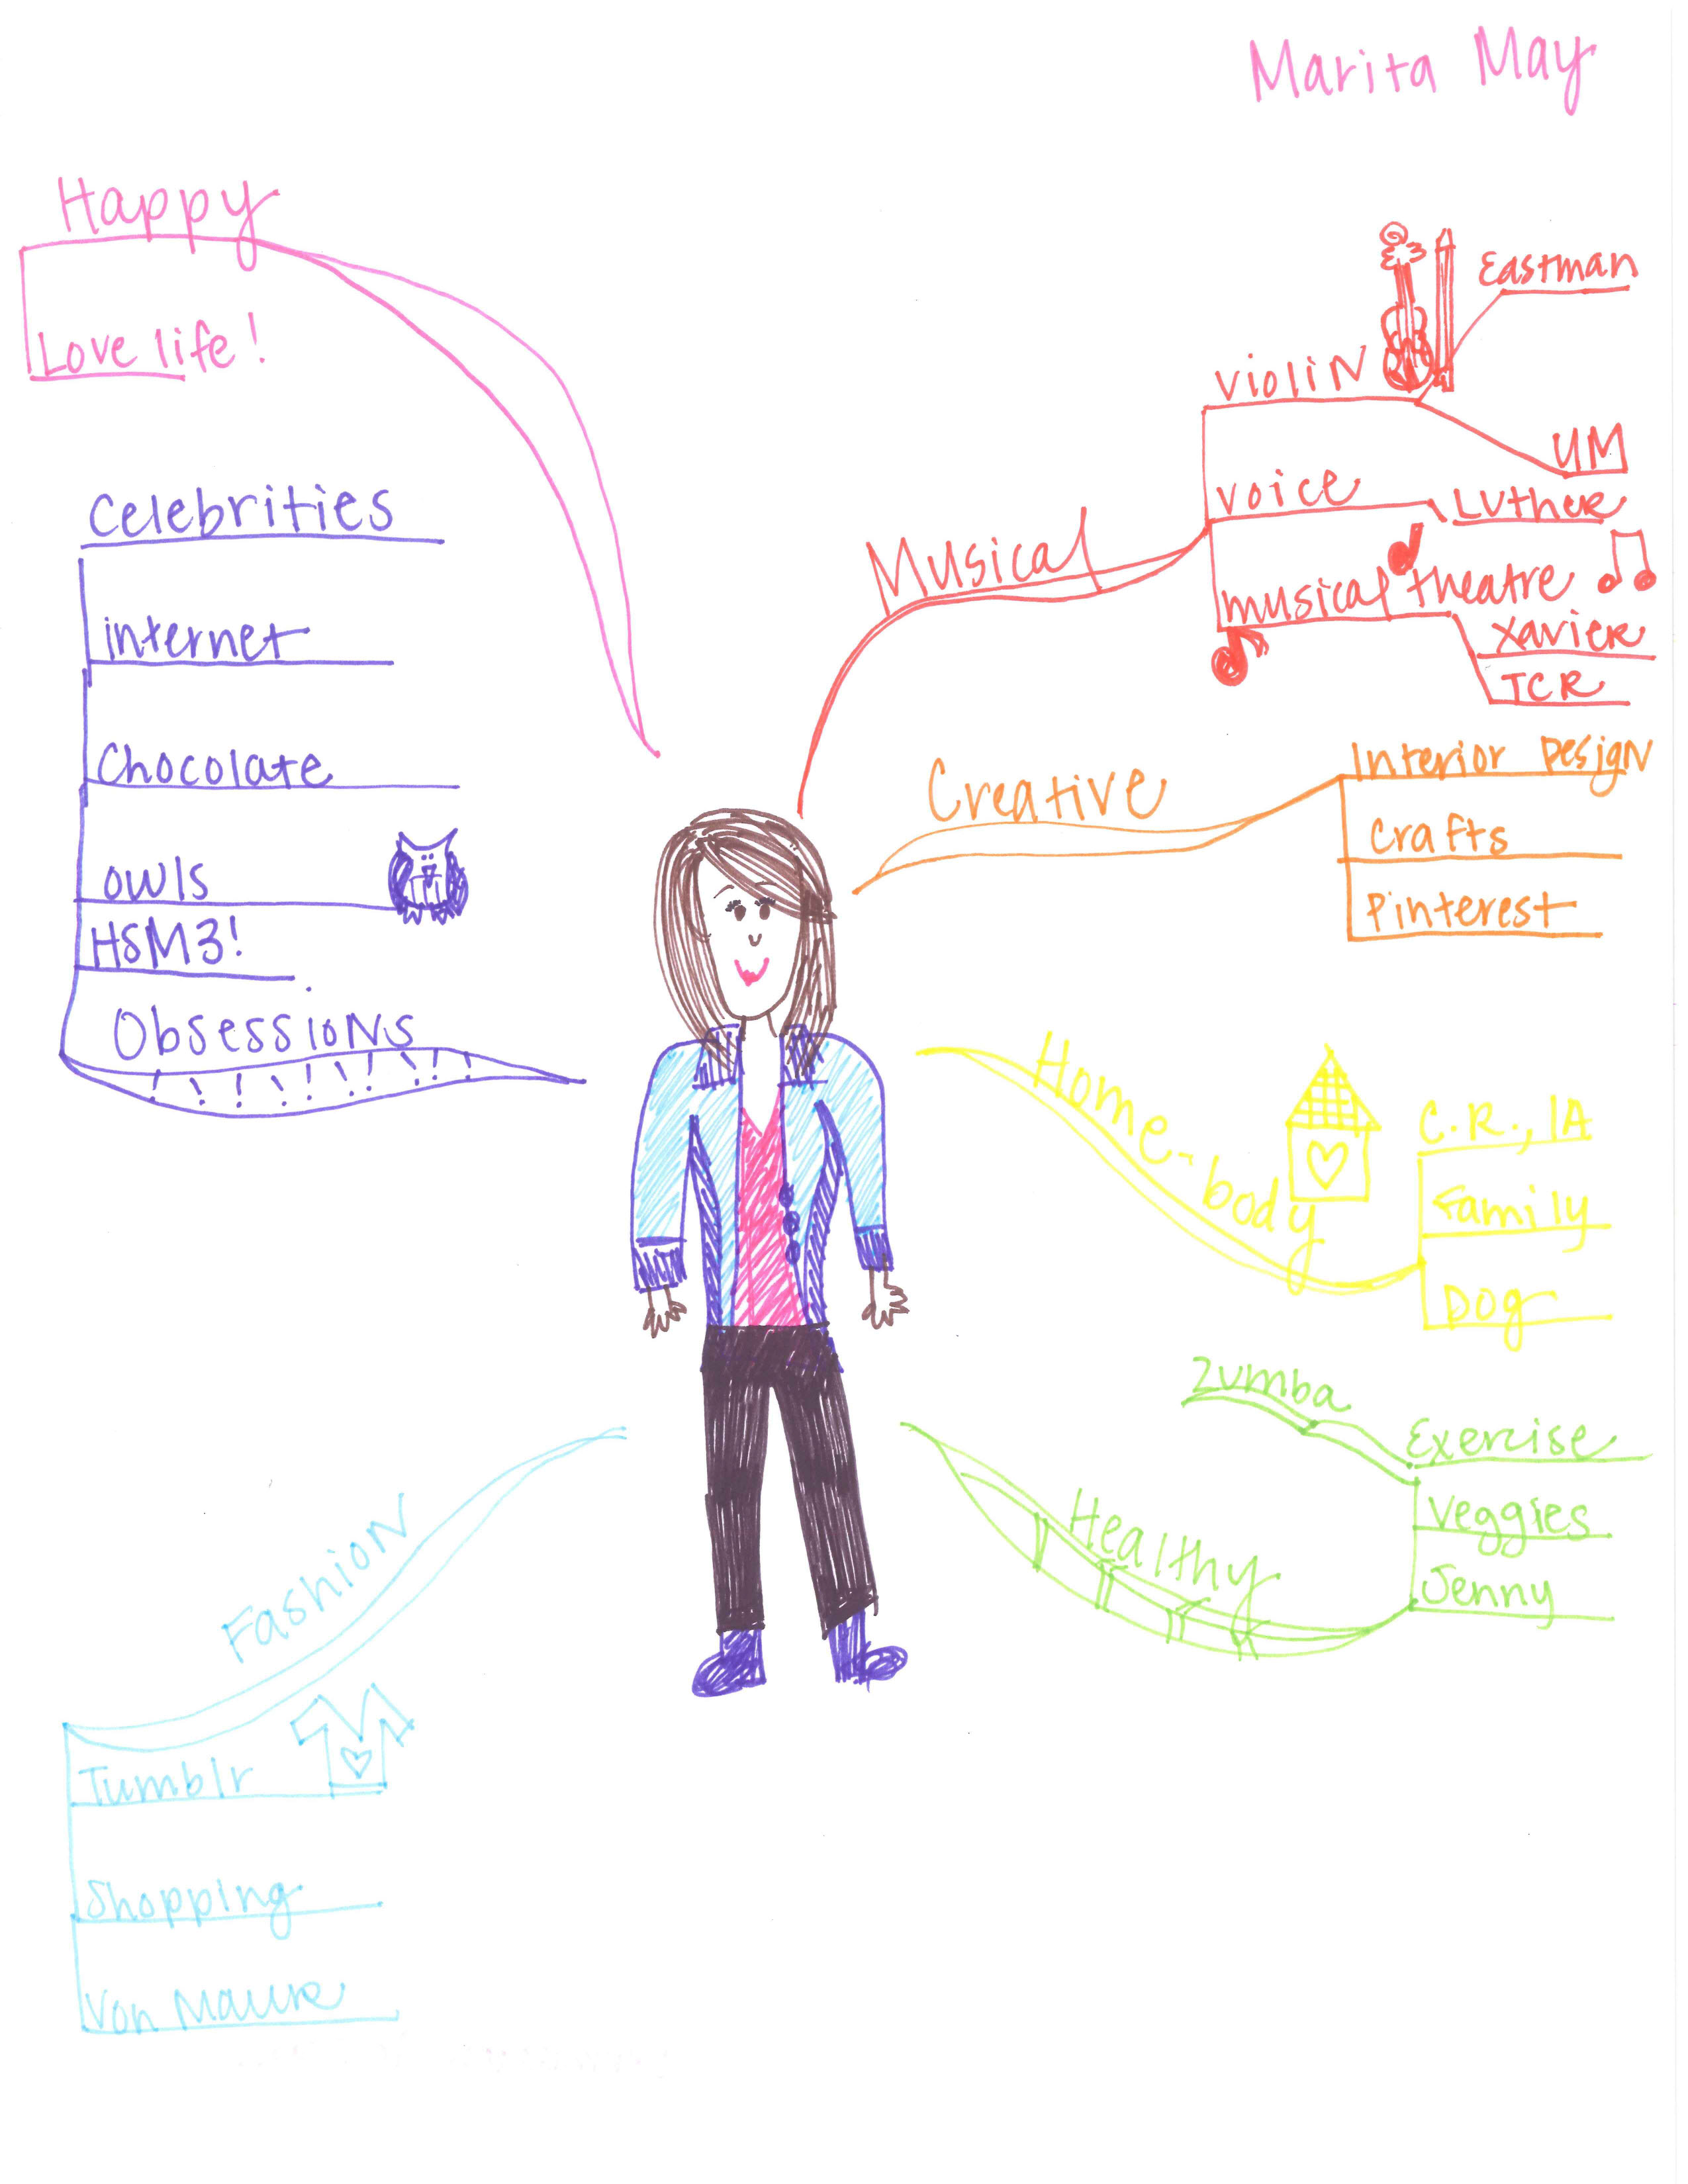 Marita May
Happy
Love life!
Celebrities
internet
Chocolate
owls
HSM3!
Obsessions
! ! ! ! ! ! ! ! !
Fashion
Tumblr
Shopping
Von Maure
Musical
violin
Eastman
UM
voice
Luther
musical theatre
Xavier
TCR
Creative
Interior Design
Crafts
Pinterest
Home-body
C.R., IA
Family
Dog
Healthy
Zumba
Exercise
Veggies
Jenny